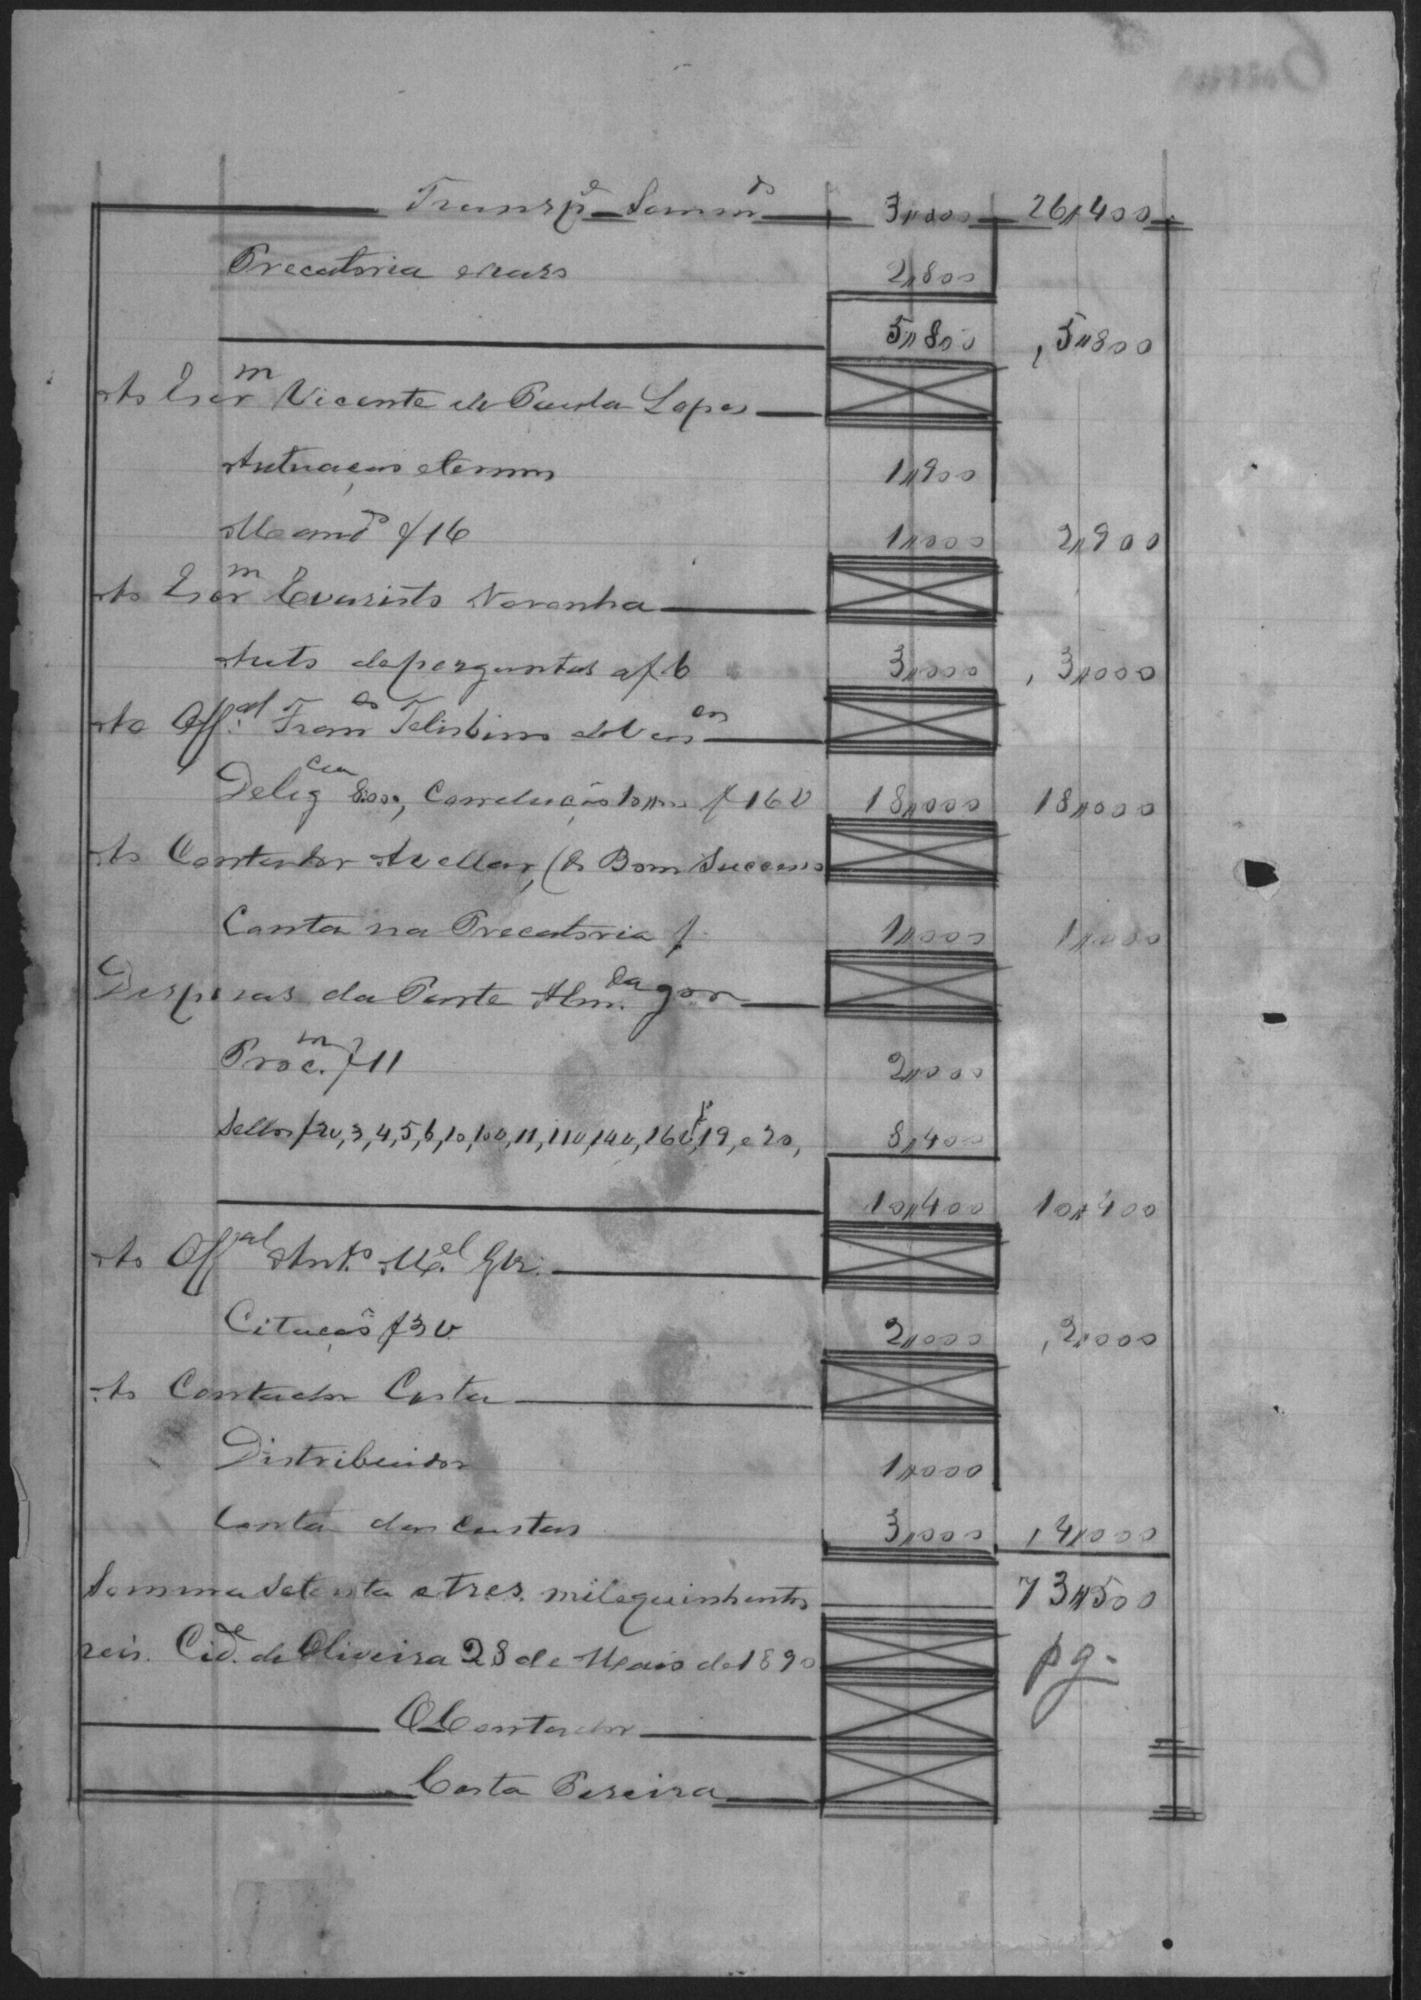 Transp.e Somm.do 3,,000 26,,400
Precatoria e raso 2,,800
5,,800 ,5,,800
Ao Escr.m Vicente de Paula Lopes
Autuação e termos 1,,900
Mand.o f 16 1,,000 2,,900
Ao Escr.m Evaristo Noronha
Auto de perguntas a f 6 3,,000 ,3,,000
Ao Off.al Fran.co
Delig.cia 8:000, Conducção 10,,000 f 16 v 18,,000 18,,000
Ao Contador Avellar, (de Bom Successo
Conta na Precatoria f. 1,,000 1,,000
Despesas da Parte
Proc.m f 11 2,,000
Sellos f 2v, 3, 4, 5, 6, 10, 10v, 11, 11v, 14v, 16v, 19, e 20, 8,,400
10,,400 10,,400
Ao Off.al Ant.o M.el
Citação f 3 v 2,,000 ,2,,000
Ao Contador Costa
Distribuidor 1,,000
Conta das custas 3,,000 ,4,,000
Somma Setenta e tres mil e quinhentos 73,,500
reis. Cid.e de Oliveira 28 de Maio de 1890 pg.
O Contador
Costa Pereira